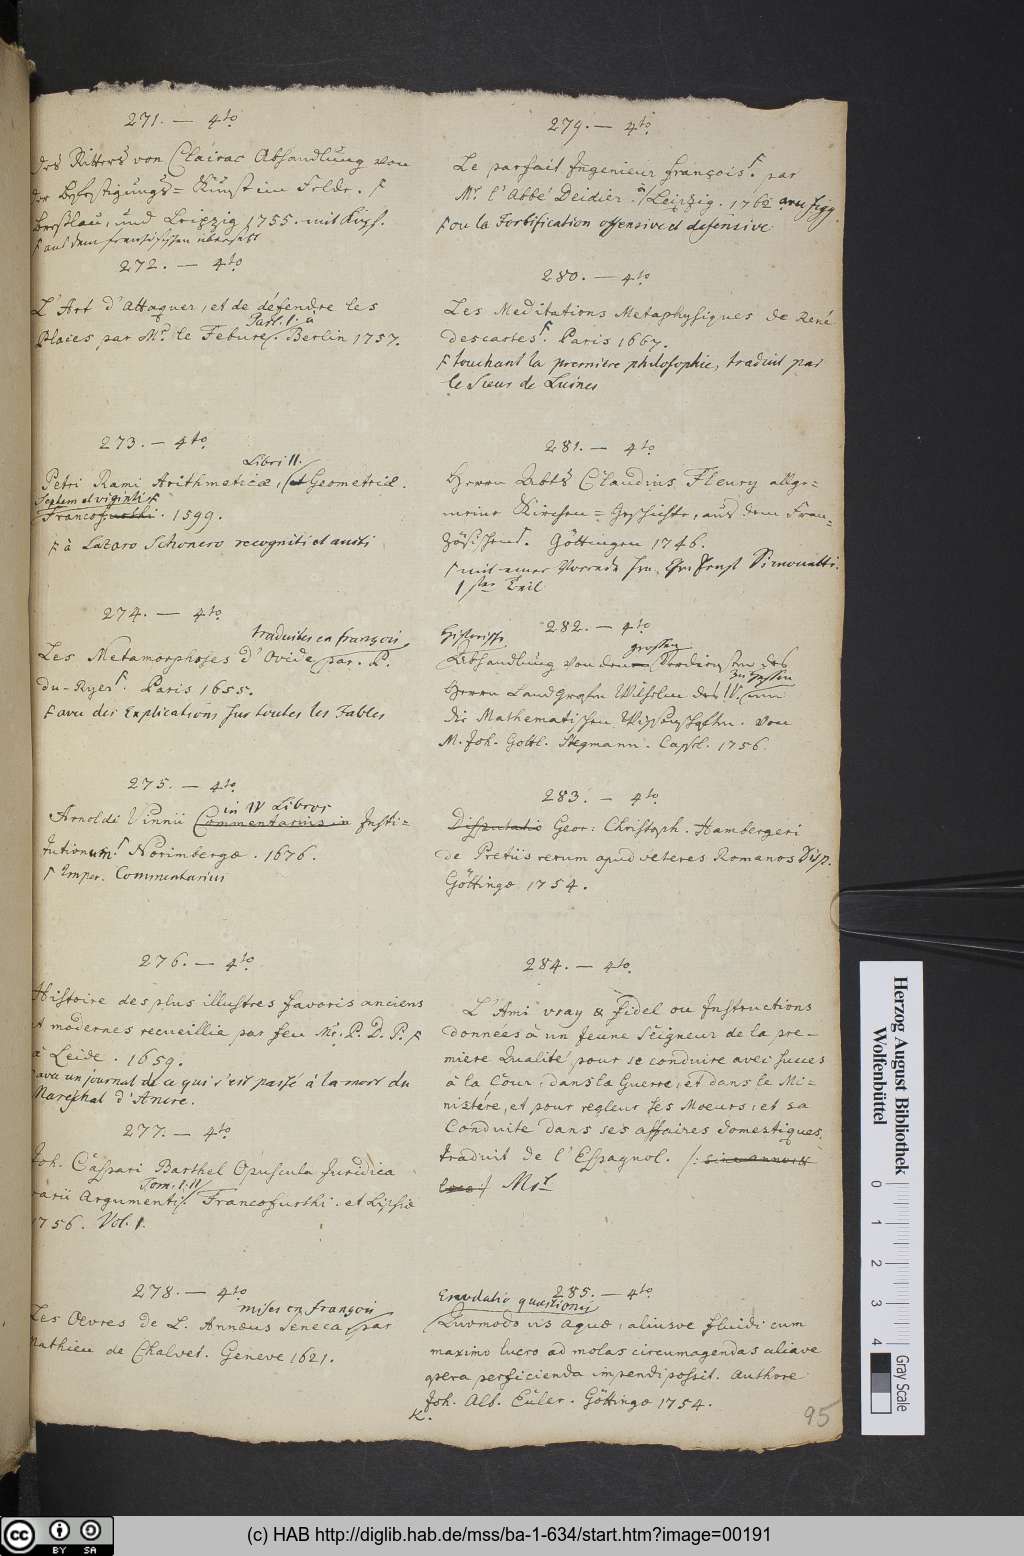 271. — 4to
Des Ritters von Clairac Abhandlung von
der Befestigungs=Kunst im Felde. F
Breßlau, und Leipzig 1755. mit Kupf.
F aus dem französischen übersezt
272. — 4to
L'Art d'attaquer, et de défendre les
Part. I. à
Places par Mr. le Febure. Berlin 1757.
273. — 4to
Libri II.
Petri Rami Arithmeticæ, et Geometriæ.
Septem et viginti F
Francofurthi. 1599.
F à Lazaro Schonero recogniti et aucti
274. — 4to
traduites en françois
Les Metamorphoses d'Ovide par. P.
du-Ryer F. Paris 1655.
F avec des Explications sur toutes les Fables
275. — 4to
in IV Libros
Arnoldi Vinnii Commentarius in Insti=
tutionum F Norimbergæ. 1676.
F Imper. Commentarius
276. — 4to
Histoire des plus illustres favoris anciens
et modernes recueillie par feu Mr. P. D. P. F
à Leide. 1659.
avec un journal de ce qui s'est passé à la mort du
Mareschal d'Ancre.
277. — 4to
Joh. Caspari Barthel Opuscula Juridica
Tom. I. II
varii Argumenti. Francofurthi. et Lipsiæ
1756. Vol. I.
278. — 4to
mises en françois
Les Oevres de L. Annæus Seneca par
Mathieu de Chalvet. Geneve 1621.
279. — 4to
Le parfait Ingenieur françois F. par
Mr. l'Abbé Deidier. à Leipzig. 1762 avec figg.
F ou la Fortification offensive et defensive
280. — 4to
Les Meditations Metaphysiques de René
Descartes F. Paris 1667.
F touchant la premiere philosophie, traduit par
le Sieur de Luines
281. — 4to
Herrn Abts Claudius Fleury allge=
meine Kirchen=Geschichte, aus dem Fran=
zösischen F. Göttingen 1746.
F mit einer Vorrede Hn. Ernst Simonetti.
1ster Teil
282. — 4to
Historische
grossen
Abhandlung von den Verdiensten des
zu Hessen
Herrn Landgrafen Wilhelm des IV. um
die Mathematischen Wissenschaften. von
M. Joh. Gottl. Stegmann. Cassel. 1756.
283. — 4to
Disputatio Geor: Christoph. Hambergeri
de Pretiis rerum apud veteres Romanos Disp.
Göttingæ 1754.
284. — 4to
L'Ami vray & fidel ou Instructions
données à un jeune Seigneur de la pre=
miere Qualité pour se conduire avec succes
à la Cour, dans la Guerre, et dans le Mi=
nistére, et pour regleur ses Moeurs, et sa
Conduite dans ses affaires domestiques.
traduit de l'Espagnol. /: sine anno et
loco :/ Mst
285. — 4to
Enodatio quæstionis
Quomodo vis aquæ, aliusve fluidi cum
maximo lucro ad molas circumagendas aliave
opera perficienda impendi possit. Authore
Joh. Alb. Euler. Göttingæ 1754.
K.
95
Herzog August Bibliothek
Wolfenbüttel
0 1 2 3 4
Gray Scale
cc BY SA
(c) HAB http://diglib.hab.de/mss/ba-1-634/start.htm?image=00191